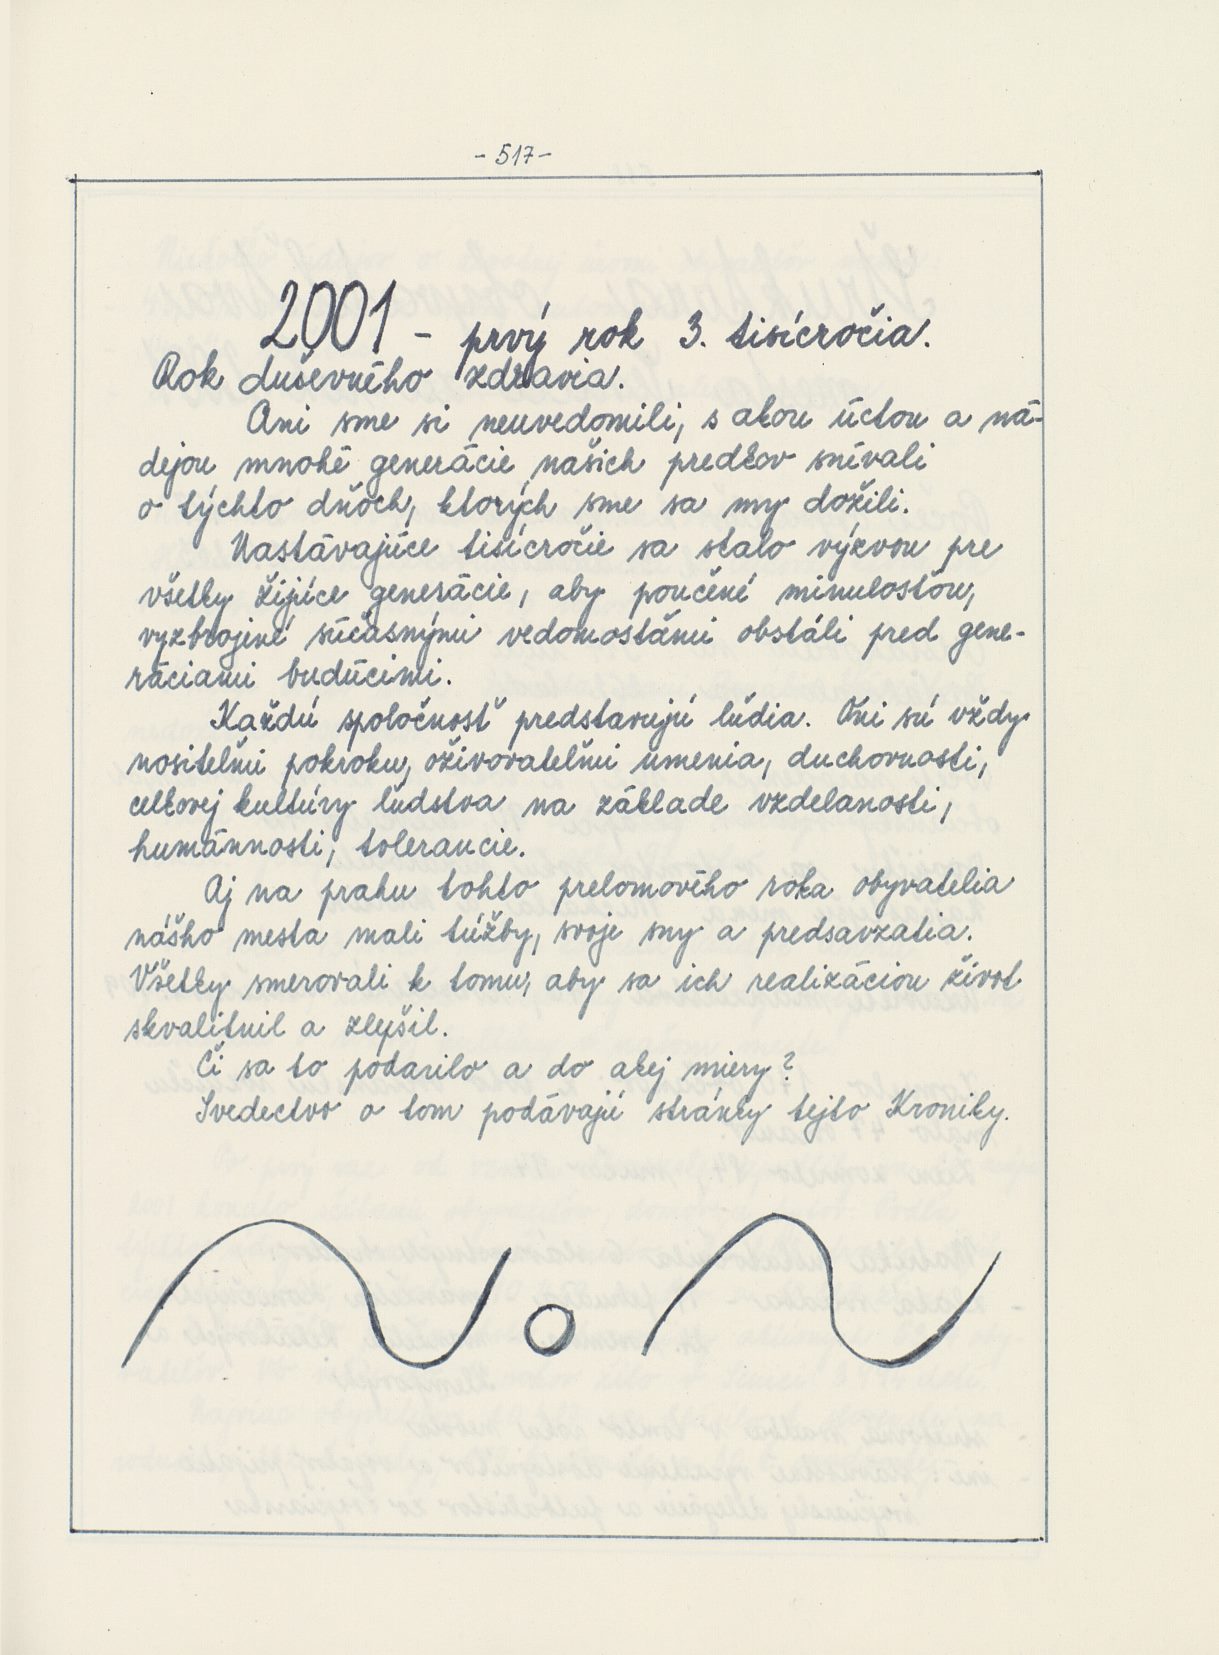 - 517 -
2001 - prvý rok 3. tisícročia.
Rok duševného zdravia.
Ani sme si neuvedomili, s akou úctou a ná-
dejou mnohé generácie našich predkov snívali
o týchto dňoch, ktorých sme sa my dožili.
Nastávajúce tisícročie sa stalo výzvou pre
všetky žijúce generácie, aby poučené minulosťou,
vyzbrojené súčasnými vedomosťami obstáli pred gene-
ráciami budúcimi.
Každú spoločnosť predstavujú ľudia. Oni sú vždy
nositeľmi pokroku, oživovateľmi umenia, duchovnosti,
celkovej kultúry ľudstva na základe vzdelanosti,
humánnosti, tolerancie.
Aj na prahu tohto prelomového roka obyvatelia
nášho mesta mali túžby, svoje sny a predsavzatia.
Všetky smerovali k tomu, aby sa ich realizáciou život
skvalitnil a zlepšil.
Či sa to podarilo a do akej miery?
Svedectvo o tom podávajú stránky tejto Kroniky.